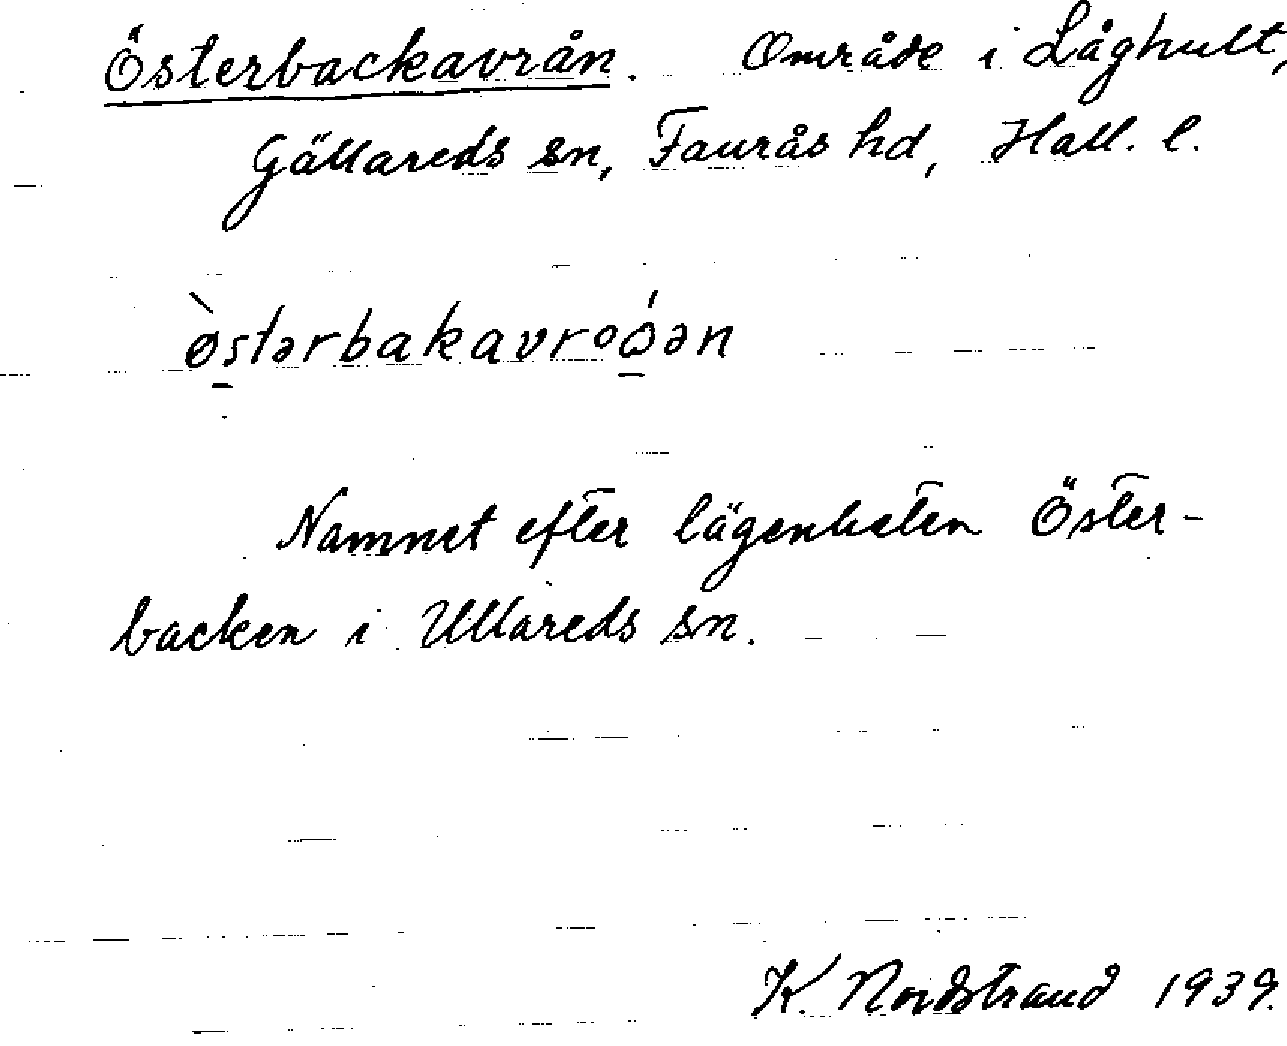 Österbackavrån. Område i Låghult,
Gällareds sn, Faurås hd, Hall. l.
ø̀stərbakavroǫ́ən
Namnet efter lägenheten Öster-
backen i Ullareds sn.
K. Nordstrand 1939.